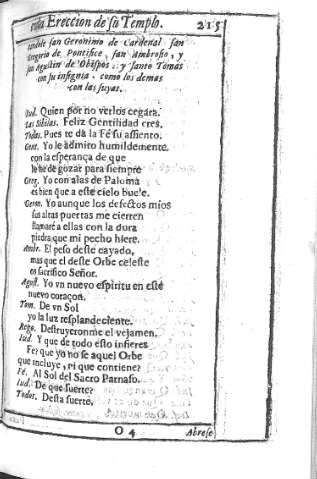 Ereccion de su Templo. 215
san Geronimo de Cardenal, san
Gregorio de Pontifice, san Ambrosio, y
san Agustin de Obispos, y santo Tomas
con su insignia, como los demas
con las suyas.
Iud. Quien por no verlos cegara.
Las Sibilas. Feliz Gentilidad eres,
Todos. Pues te dà la Fè su assiento.
Gent. Yo le admito humildemente,
con la esperança de que
le he de gozar para siempre.
Greg. Yo con alas de Paloma
es bien que a este cielo buele.
Geron. Yo aunque los defectos mios
sus altas puertas me cierren
llamarè a ellas con la dura
piedra que mi pecho hiere.
Ambr. El peso deste cayado,
mas que el deste Orbe celeste
en sacrificio Señor.
Agust. Yo vn nuevo espiritu en este
nuevo coraçon.
Tom. De vn Sol
yo la luz resplandeciente.
Rego. Destruyeronme el vejamen.
Iud. Y que de todo esto infieres
Fe? que yo no se aquel Orbe
que incluye, ni que contiene?
Fè. Al Sol del Sacro Parnaso.
Iud. De que suerte?
Todos. Desta suerte.
O 4 Abrese